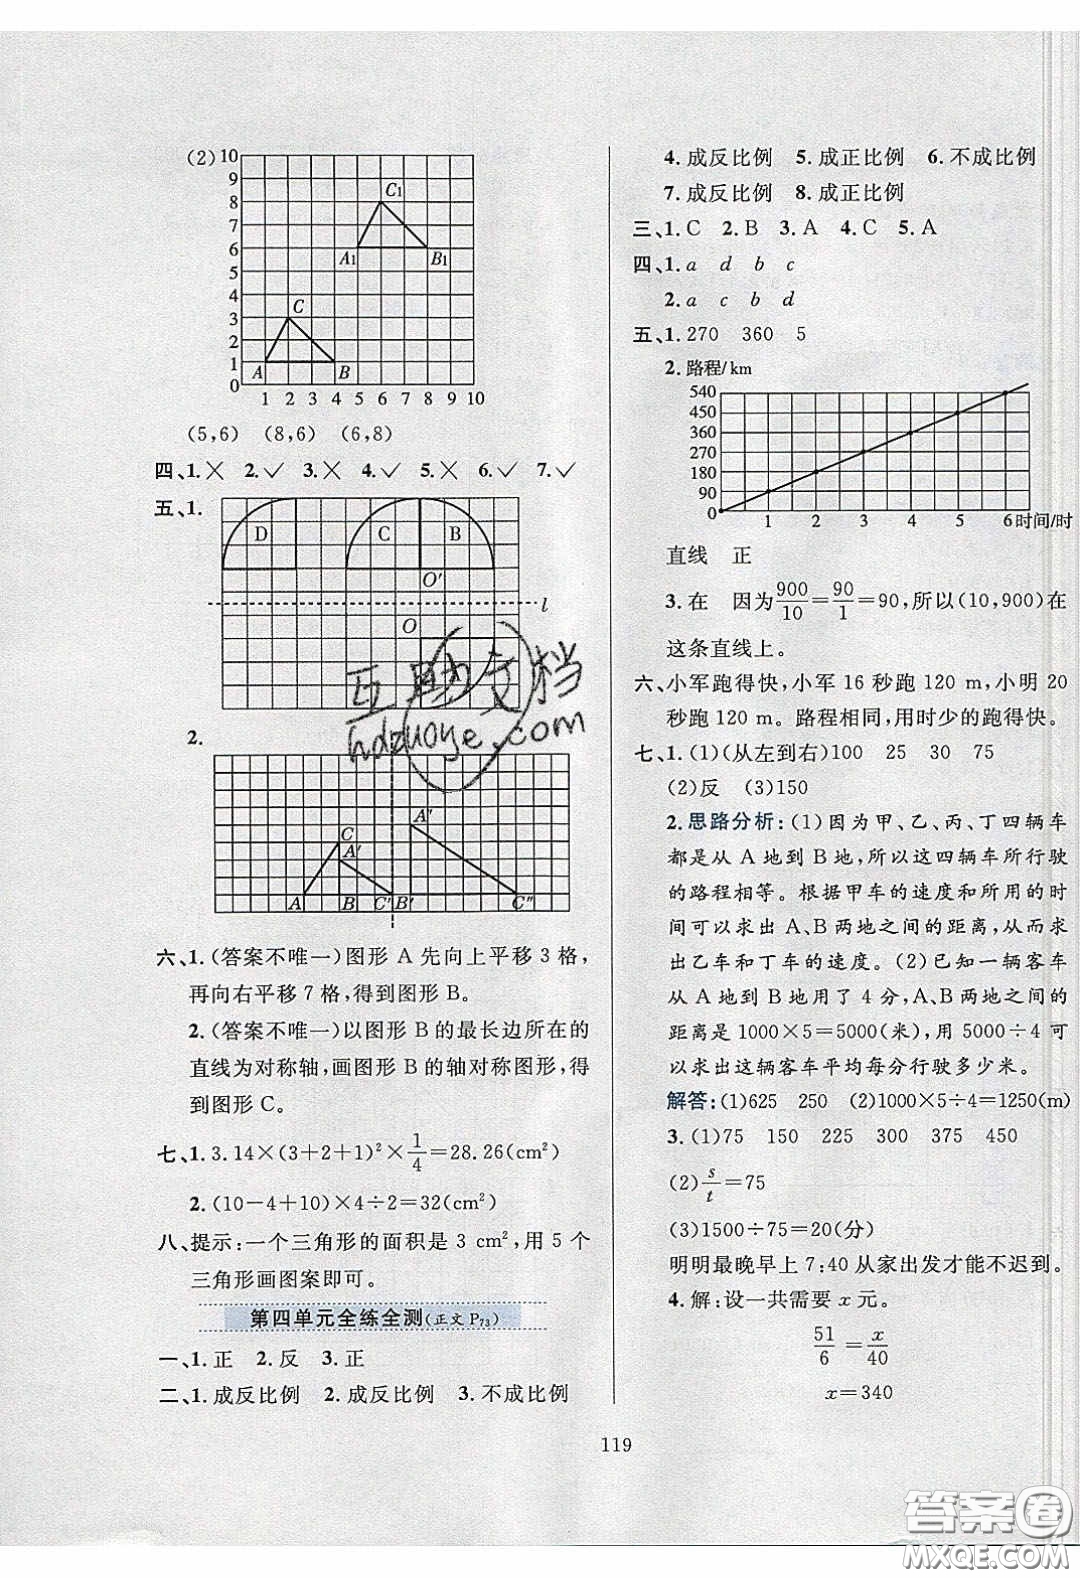 (2) 10
9
8
7
6
5
4
3
2
1
0
C₁
A₁ B₁
C
A B
1 2 3 4 5 6 7 8 9 10
(5,6) (8,6) (6,8)
四、1.× 2.✓ 3.× 4.✓ 5.× 6.✓ 7.✓
五、1.
D C B
O′
l
O
2.
A′
C
A′
A B C′ B′ C″
六、1.(答案不唯一)图形 A 先向上平移 3 格,
再向右平移 7 格,得到图形 B。
2.(答案不唯一)以图形 B 的最长边所在的
直线为对称轴,画图形 B 的轴对称图形,得
到图形 C。
七、1.3.14×(3+2+1)²×1/4=28.26(cm²)
2.(10-4+10)×4÷2=32(cm²)
八、提示:一个三角形的面积是 3 cm²,用 5 个
三角形画图案即可。
第四单元全练全测(正文 P₇₃)
一、1.正 2.反 3.正
二、1.成反比例 2.成反比例 3.不成比例
4.成反比例 5.成正比例 6.不成比例
7.成反比例 8.成正比例
三、1.C 2.B 3.A 4.C 5.A
四、1.a d b c
2.a c b d
五、1.270 360 5
2.路程/km
540
450
360
270
180
90
0
1 2 3 4 5 6 时间/时
直线 正
3.在 因为900/10=90/1=90,所以(10,900)在
这条直线上。
六、小军跑得快,小军 16 秒跑 120 m,小明 20
秒跑 120 m。路程相同,用时少的跑得快。
七、1.(1)(从左到右)100 25 30 75
(2)反 (3)150
2.思路分析:(1)因为甲、乙、丙、丁四辆车
都是从 A 地到 B 地,所以这四辆车所行驶
的路程相等。根据甲车的速度和所用的时
间可以求出 A、B 两地之间的距离,从而求
出乙车和丁车的速度。(2)已知一辆客车
从 A 地到 B 地用了 4 分,A、B 两地之间的
距离是 1000×5=5000(米),用 5000÷4 可
以求出这辆客车平均每分行驶多少米。
解答:(1)625 250 (2)1000×5÷4=1250(m)
3.(1)75 150 225 300 375 450
(2)s/t=75
(3)1500÷75=20(分)
明明最晚早上 7:40 从家出发才能不迟到。
4.解:设一共需要 x 元。
51/6=x/40
x=340
119
互助文档
hdzuoye.com
答案卷
MXQE.COM